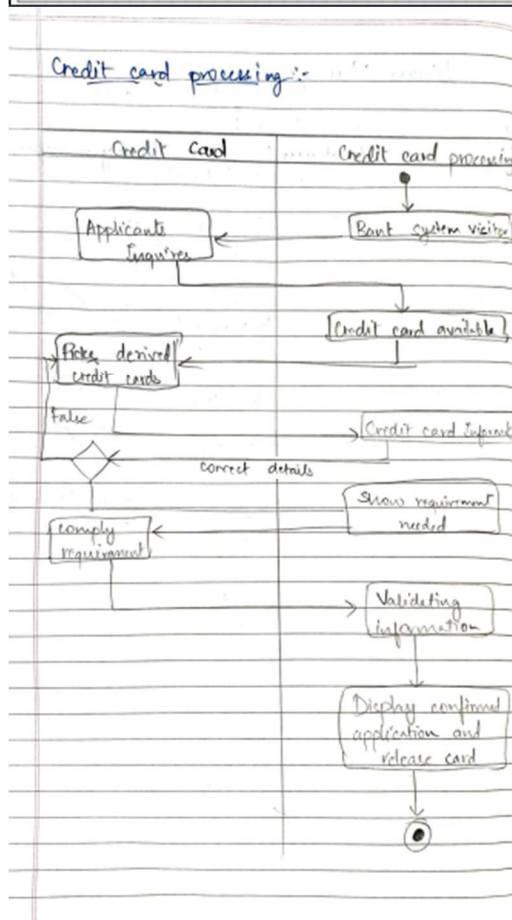 Credit card processing :-
Credit Card
Credit card processin
Bank system visitor
Applicants
Inquires
Credit card available
Picks derived
credit cards
False
Credit card Informat
correct details
Show requirement
needed
comply
requirement
Validating
information
Display confirmed
application and
release card